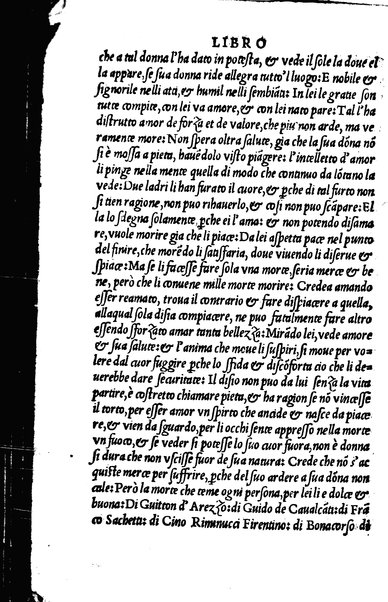 LIBRO
che a tal donna l'ha dato in potesta, & vede il sole la doue el
la appare, se sua donna ride allegra tutto'l luogo: E nobile &
signorile nelli atti, & humil nelli sembiāti: In lei le gratie son
tutte compite, con lei va amore, & con lei nato pare: Tal l'ha
distrutto amor de forza et de valore, che piu non arde, ma ve
ramente more: Non spera oltra salute, gia che la sua dōna nō
si è mossa a pieta, hauēdolo visto piāgere: l'intelletto d'amor
li pinge nella mente quella di modo che continuo da lōtano la
vede: Due ladri li han furato il cuore, & ꝑche di tal furto non
si tien ragione, non puo rihauerlo, & cosi non puo scāpare: El
la lo sdegna solamente, ꝑche ei l'ama: & non potendo disama
re, vuole morire gia che li piace: Da lei aspetta pace nel punto
del finire, che morēdo li satisfaria, doue viuendo li diserue &
spiace: Ma se li facesse fare sola vna morte, seria merce & be
ne, però che li conuene mille morte morire: Credea amando
esser reamato, troua il contrario & fare dispiacere a quella,
allaqual sola disia compiacere, ne puo fatalmente fare altro
essendo sforzato amar tanta bellezza: Mirādo lei, vede amore
& sua salute: & l'anima che moue li suspiri, si moue per vo=
lere dal cuor fuggire ꝑche lo sfida & discōforta cio che li de=
uerebbe dare securitate: Il disio non puo da lui senza la vita
partire, è costretto chiamare pieta, & ha ragion se nō vincesse
il torto, per esser amor vn spirto che ancide & nasce da piace
re, & vien da sguardo, per li occhi sente appresso nella morte
vn fuoco, & se veder si potesse lo suo cuor fuora, non è donna
si dura che non vscisse fuor de sua natura: Crede che nō s'ac
quiste merce per suffrire, ꝑche del suo ardere a sua dōna non
cale: Però la morte che teme ogni persona, per lei li è dolce &
buona: Di Guitton d'Arezzo: di Guido de Caualcāti: di Frā
co Sachetti: di Cino Rimnucci Firentino: di Bonacorso di